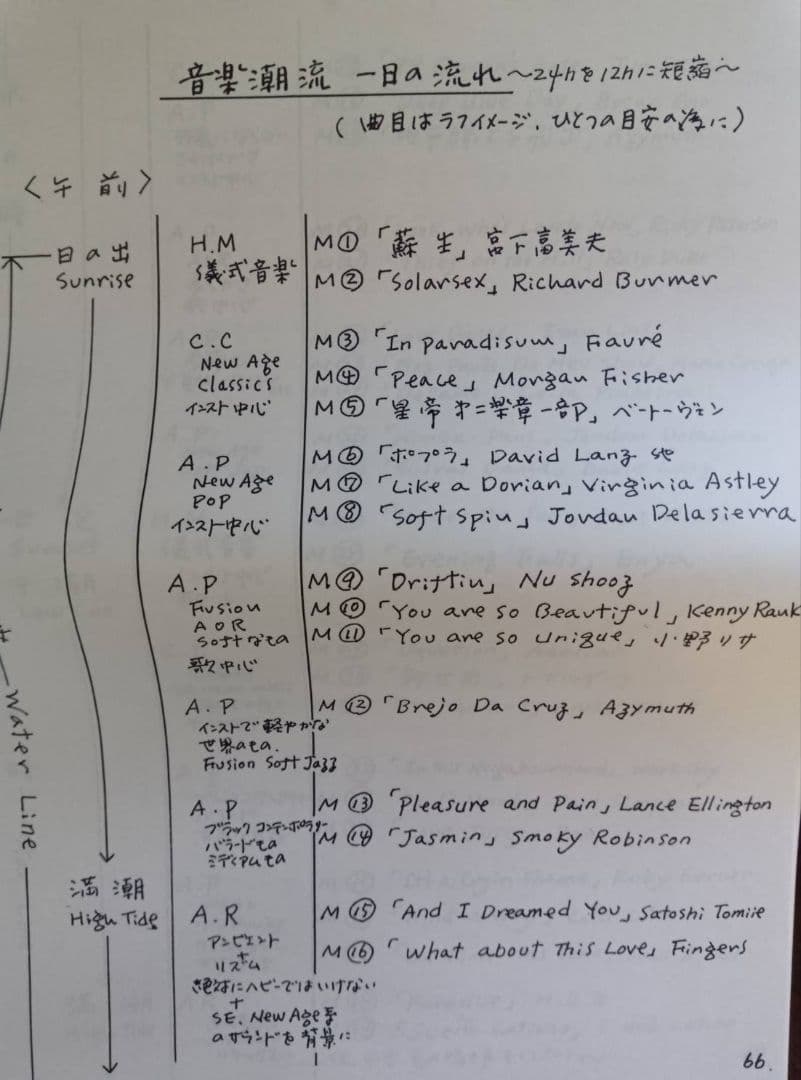 音楽潮流 一日の流れ ～24hを12hに短縮～
(曲目はラフイメージ、ひとつの目安の為に)
〈午前〉
日の出
Sunrise
H.M
儀式音楽
M①「蘇生」宮下富美夫
M②「Solarsex」Richard Burmer
C.C
New Age
Classics
インスト中心
M③「In paradisum」Fauré
M④「Peace」Morgan Fisher
M⑤「皇帝 第二楽章一部」ベートーヴェン
A.P
New Age
POP
インスト中心
M⑥「ポプラ」David Lanz 他
M⑦「Like a Dorian」Virginia Astley
M⑧「Soft Spin」Jordan Delasierra
A.P
Fusion
AOR
Softなもの
歌中心
M⑨「Driftin」Nu Shooz
M⑩「You are so Beautiful」Kenny Rank
M⑪「You are so unique」小野リサ
A.P
インストで軽やかな
世界のもの.
Fusion Soft Jazz
M⑫「Brejo Da Cruz」Azymuth
A.P
ブラックコンテンポラリー
バラードもの
ミディアムもの
M⑬「Pleasure and Pain」Lance Ellington
M⑭「Jasmin」Smoky Robinson
Water Line
満潮
High Tide
A.R
アンビエント
+
リズム
絶対にヘビーではいけない
+
SE、New Age等
のサウンドを背景に
M⑮「And I Dreamed You」Satoshi Tomiie
M⑯「What about This Love」Fingers
66.